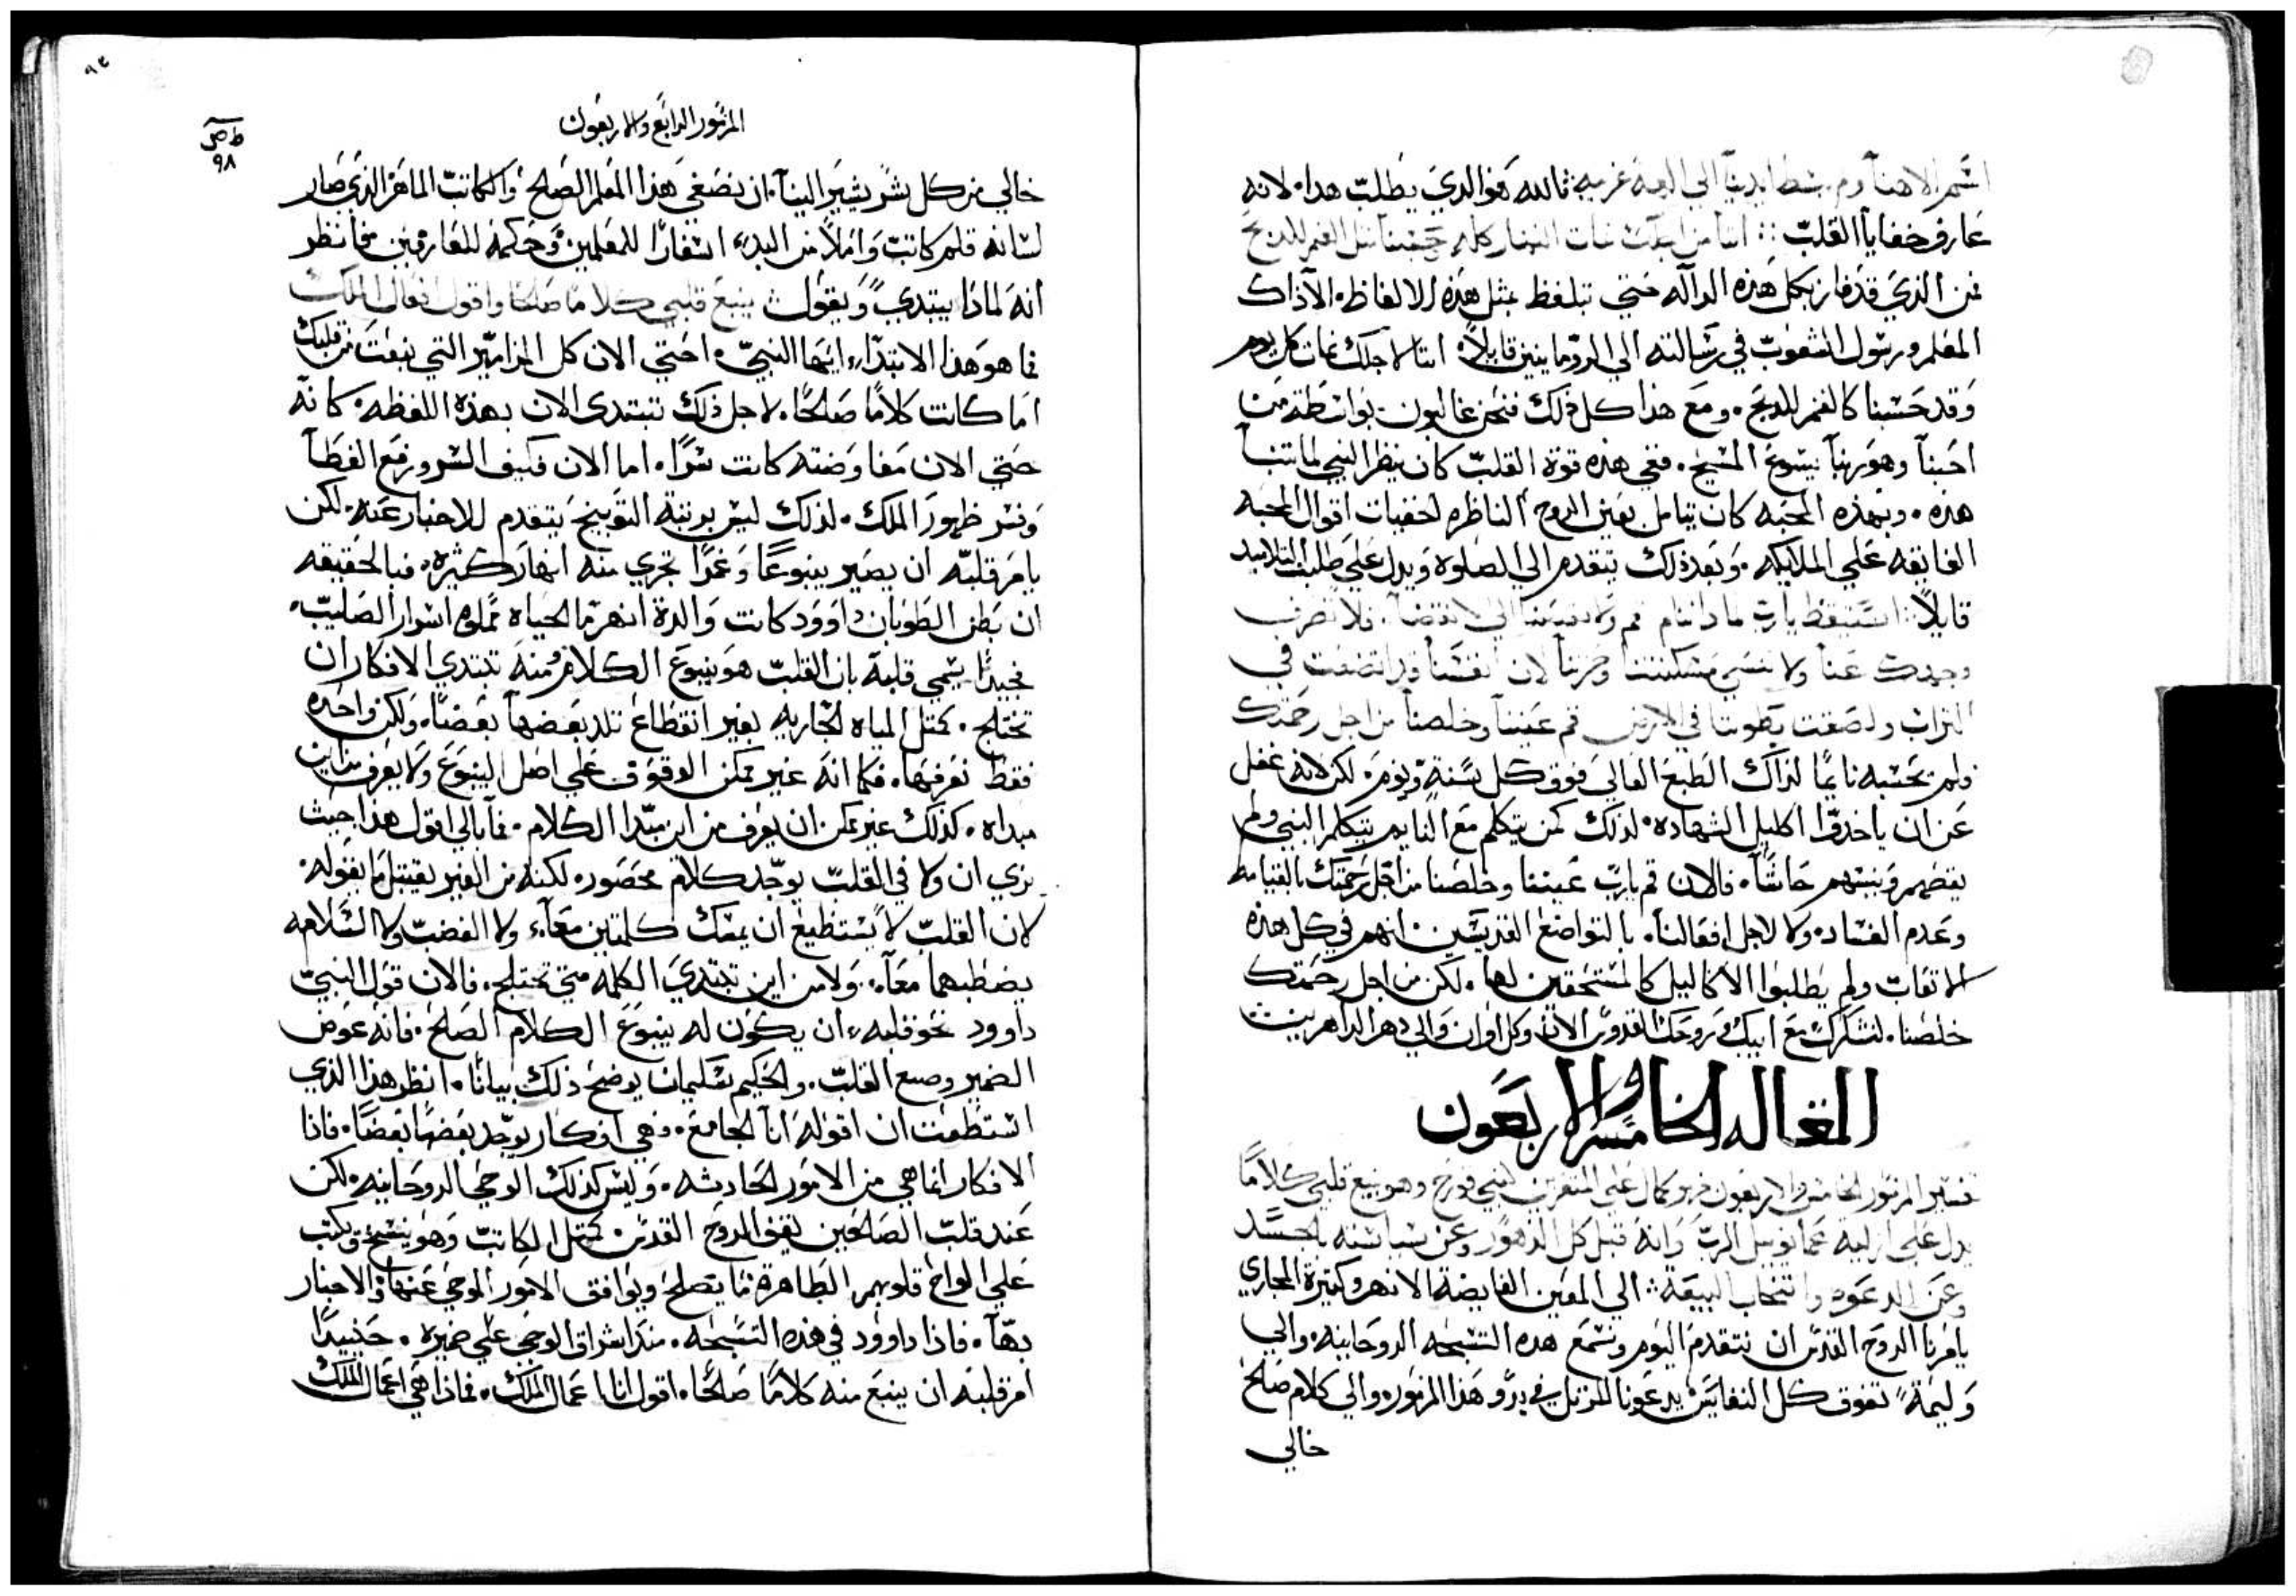 اسم الاهنا وم بسطنا يدينا الي اله غريبه فالله هو الدي يطلب هدا لانه
عارف خفايا القلب : اننا من اجلك نمات النهار كله حسبنا مثل الغنم للدبح
فمن الدي قد فاز بكل هذه الداله حتي تلفظ بمثل هذه الالفاظ الا داك
المعلم ورسول الشعوب في رسالته الي الرومانيين قايلا اننا لاجلك نمات كل يوم
وقد حسبنا كالغنم للدبح ومع هدا كل ذلك فنحن غالبون بواسطة من
احبنا وهو ربنا يسوع المسيح ففي هذه قوة القلب كان ينظر النبي لما تنبا
هده وبهذه المحبه كان يتامل بعين الروح الناظره لخفيات اقوال المحبه
الفايقه علي الملايكه وبعد ذلك يتقدم الي الصلوه ويدل علي طلبت التلاميد
قايلا استيقظ يارب لما دا تنام قم ولا تقصنا الي الانقضا فلا تصرف
وجهك عنا ولا تنسي مسكنتنا وحزننا لان نفسنا قد اتضعت في
التراب ولصقت بطوننا في الارض قم عيننا وخلصنا من اجل رحمتك
ولم يحسبه نايما لذاك الطبع العالي فوق كل سنة ونوم لكن لانه غفل
عن ان ياخدوا اكليل الشهاده لذلك كمن يتكلم مع النايم يتكلم النبي ولم
يقصهم وينسهم حاشا فالان قم يارب عيننا وخلصنا من اجل رحمتك بالقيامه
وعدم الفساد ولا لاجل افعالنا يا لتواضع القديسين انهم في كل هذه
الاتعاب ولم يطلبوا الاكاليل كالمستحقين لها لكن من اجل رحمتك
خلصنا لنشكرك مع ابيك وروحك القدوس الان وكل اوان والي دهر الداهرين
المقاله الخامسه والاربعون
تفسير المزمور الخامس والاربعون فهو كمال علي المتغيرين لبني قورح وهو ينبع قلبي كلاما
يدل علي ازلية عمانويل الرب وانه قبل كل الدهور وعن سياسته بالجسد
وعن الدعوه وانتخاب البيعه : الي المعين الفايضة الانهر وكتيرة المجاري
يامرنا الروح القدس ان نتقدم اليوم ونسمع هده التسبحه الروحانيه والي
وليمة تفوق كل النفايس يدعونا المرتل في بدو هذا المزمور والي كلام صالح
خالي
المزمور الرابع والاربعون
ط ص
٩٨
خالي من كل شر يشير الينا ان نصغي هذا المعلم الصالح والكاتب الماهر الذي صار
لسانه قلم كاتب واملا من البدء اسفارا للمعلمين وحكمة للعارفين فانظر
انه لماذا يبتدي ويقول ينبع قلبي كلاما صالحا واقول افعال الملك
فما هو هذا الابتداء ايها النبي احتي الان كل المزامير التي نبعت من قلبك
اما كانت كلاما صالحا لاجل ذلك تبتدي الان بهذه اللفظه كانه
حتي الان مفاوضته كانت سرا اما الان فكيف السر ورفع الغطا
وفسر ظهور الملك لذلك ليس برتبة التوبيخ يتقدم للاخبار عنه لكن
يامر قلبه ان يصير ينبوعا وغمرا تجري منه انهار كثيره فبالحقيقه
ان بطن الطوبان داوود كانت والدة انهر ما الحياه مملوه اسرار الصليب
فجيدا يسمي قلبه بان القلب هو ينبوع الكلام ومنه تبتدي الافكار ان
تختلج كمتل المياه الجاريه بغير انقطاع تلد بعضها بعضا ولكن واحده
فقط نعرفها فكما انه غير ممكن الوقوف علي اصل الينبوع ولا يعرف من اين
مبداه كذلك غير ممكن ان يعرف من اين مبدا الكلام فما بالي اقول هذا حيث
نري ان ولا في القلب يوجد كلام محصور لكنه من الغير يقتبل ما يقوله
لان القلب لا يستطيع ان يمسك كلمتين معا ولا الغضب ولا السلامه
يضبطهما معا ولا من اين تبتدي الكلمه متي تختلج فالان قول النبي
داوود نحو قلبه ان يكون له ينبوع الكلام الصالح فانه عوض
الضمير وضع القلب والحكيم سليمان يوضح ذلك بيانا انظر هذا الذي
استطعت ان اقوله انا الجامع وهي افكار يوجد بعضها بعضا فاذا
الافكار انما هي من الامور الحادثه وليس كذلك الوحي الروحانيه لكن
عند قلب الصالحين يقف الروح القدس كمتل الكاتب وهو ينسخ ويكتب
علي الواح قلوبهم الطاهرة ما يصلح ويوافق الامور الموحي عنها والاخبار
بها فاذا داوود في هذه التسبحه منذ اشراق الوحي علي ضميره حينيدا
امر قلبه ان ينبع منه كلاما صالحا اقول انا اعمال الملك فماذا هي اعمال الملك